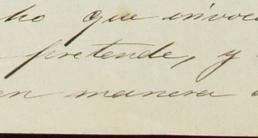 ho que invoc
pretende, y
en manera